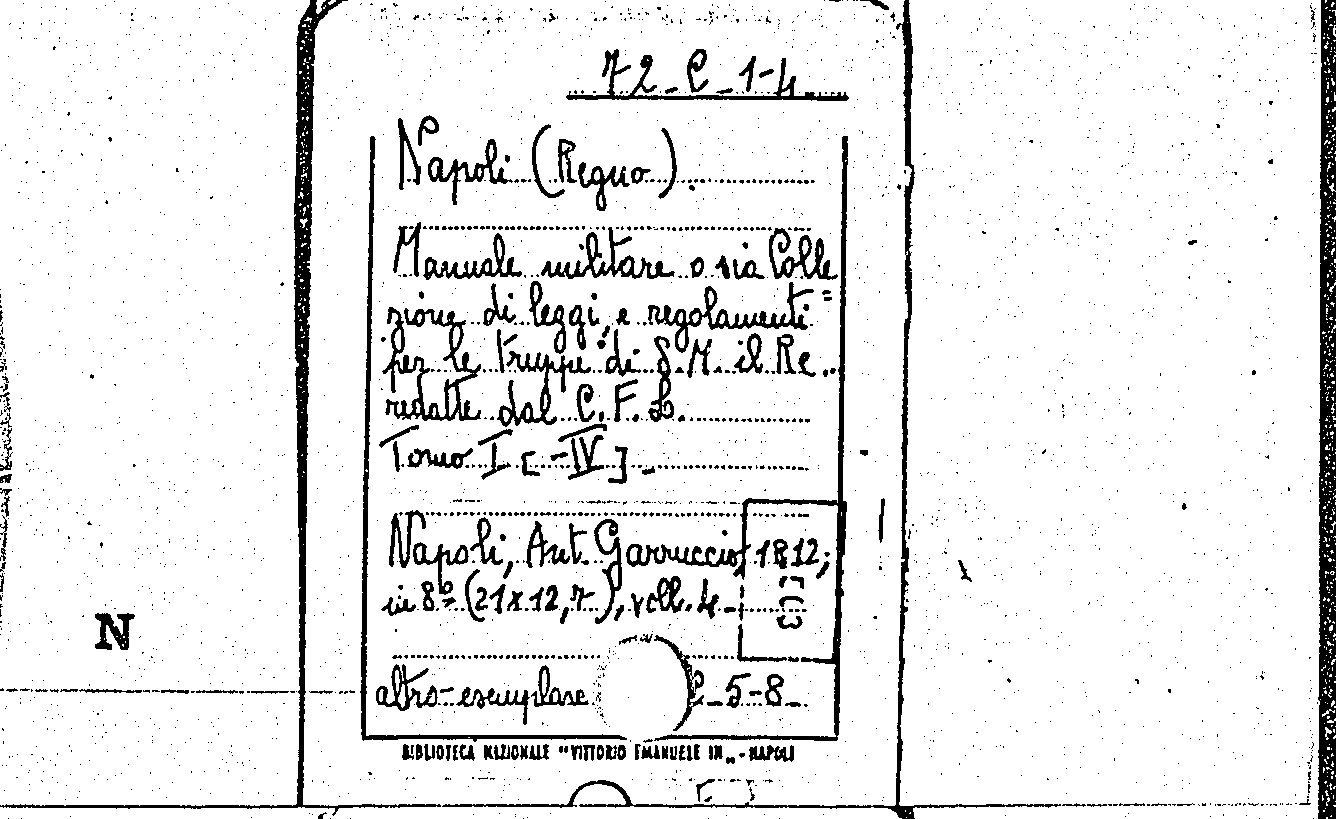 72_C_1-4_
Napoli (Regno).
Manuale militare o sia Colle=
zione di leggi, e regolamenti
per le truppe di S.M. il Re..
redatte dal C.F.L.
Tomo I [-IV].
Napoli, Ant. Garruccio, 1812;
in 8º (21x12,7), voll. 4_
N
altro-esemplare C_5-8_
BIBLIOTECA NAZIONALE "VITTORIO EMANUELE III„ - NAPOLI